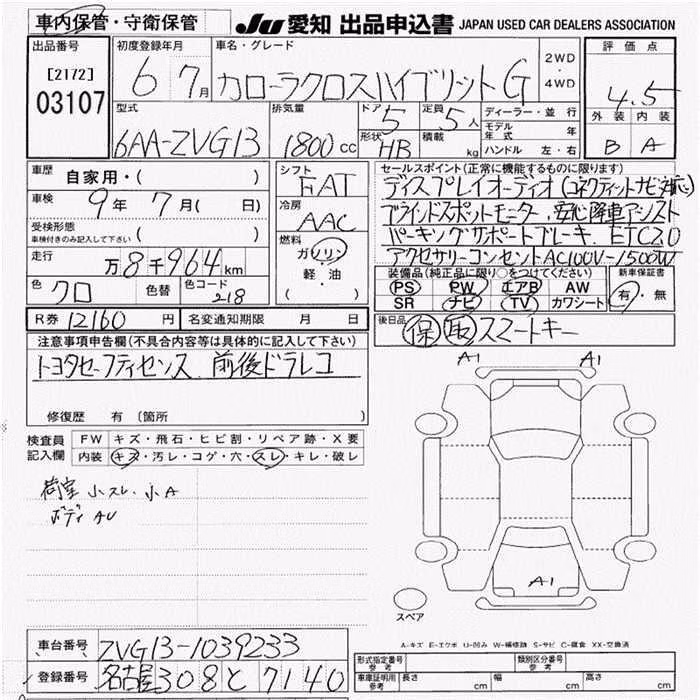 車内保管・守衛保管
JU 愛知 出品申込書 JAPAN USED CAR DEALERS ASSOCIATION
出品番号
[2172]
03107
初度登録年月
6 7月
車名・グレード
カローラクロスハイブリットG
2WD
・
4WD
評価点
4.5
外装 内装
B A
型式
6AA-ZVG13
排気量
1800cc
ドア 5
形状 HB
定員 5人
積載 kg
ディーラー・並行
モデル年式 年
ハンドル 左・右
車歴 自家用・( )
車検 9年 7月( 日)
受検形態
車検付きのみ記入して下さい ( )
走行 万8千964km
色 クロ 色替 色コード 218
R券 12160円 名変通知期限 月 日
シフト
FAT
冷房
AAC
燃料
ガソリン
・
軽・油
( )
セールスポイント(正常に機能するものに限ります)
ディスプレイオーディオ(コネクティットナビ対応)
ブラインドスポットモニター、安心降車アシスト
パーキングサポートブレーキ. ETC2.0
アクセサリーコンセントAC100V-1500W
装備品(純正品に限り○をつけてください)
PS PW エアB AW
SR ナビ TV カワシート
新車保証書
有・無
後日品 保 取 スマートキー
注意事項申告欄(不具合内容等は具体的に記入して下さい)
トヨタセーフティセンス. 前後ドラレコ
修復歴 有 〔箇所 〕
検査員記入欄
FW キズ・飛石・ヒビ割・リペア跡・X要
内装 キズ・汚レ・コゲ・穴・スレ・キレ・破レ
荷室 小スレ. 小A
ボディ AU
A1 A1
A1
スペア
A-キズ E-エクボ U-凹み W-補修跡 S-サビ C-腐食 XX-交換済
車台番号 ZVG13-1039233
登録番号 名古屋308と7140
形式指定番号 参考 類別区分番号 参考
車庫証明用 参考 長さ cm 幅 cm 高さ cm